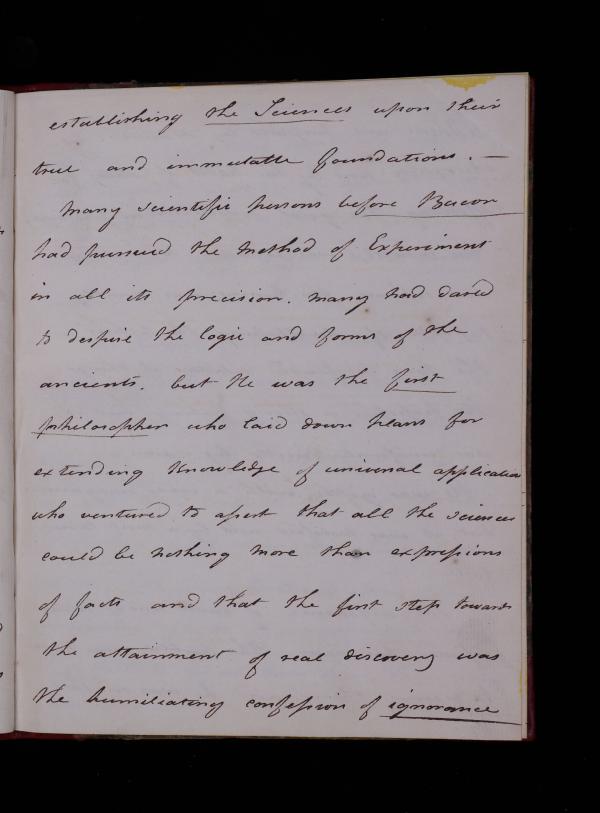 establishing the Sciences upon their
true and immutable foundations. —
Many scientific persons before Bacon
had pursued the Method of Experiment
in all its precision. many had dared
to despise the logic and forms of the
ancients. but He was the first
philosopher who laid down plans for
extending Knowledge of universal application
who ventured to assert that all the sciences
could be nothing more than expressions
of facts and that the first step towards
the attainment of real discovery was
the humiliating confession of ignorance